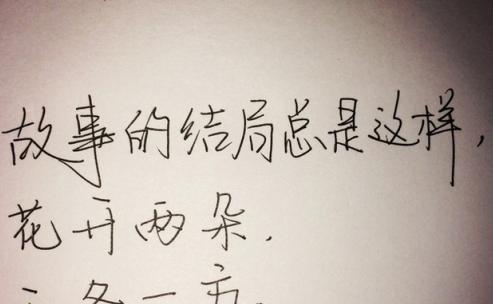 故事的结局总是这样，
花开两朵.
各一方.